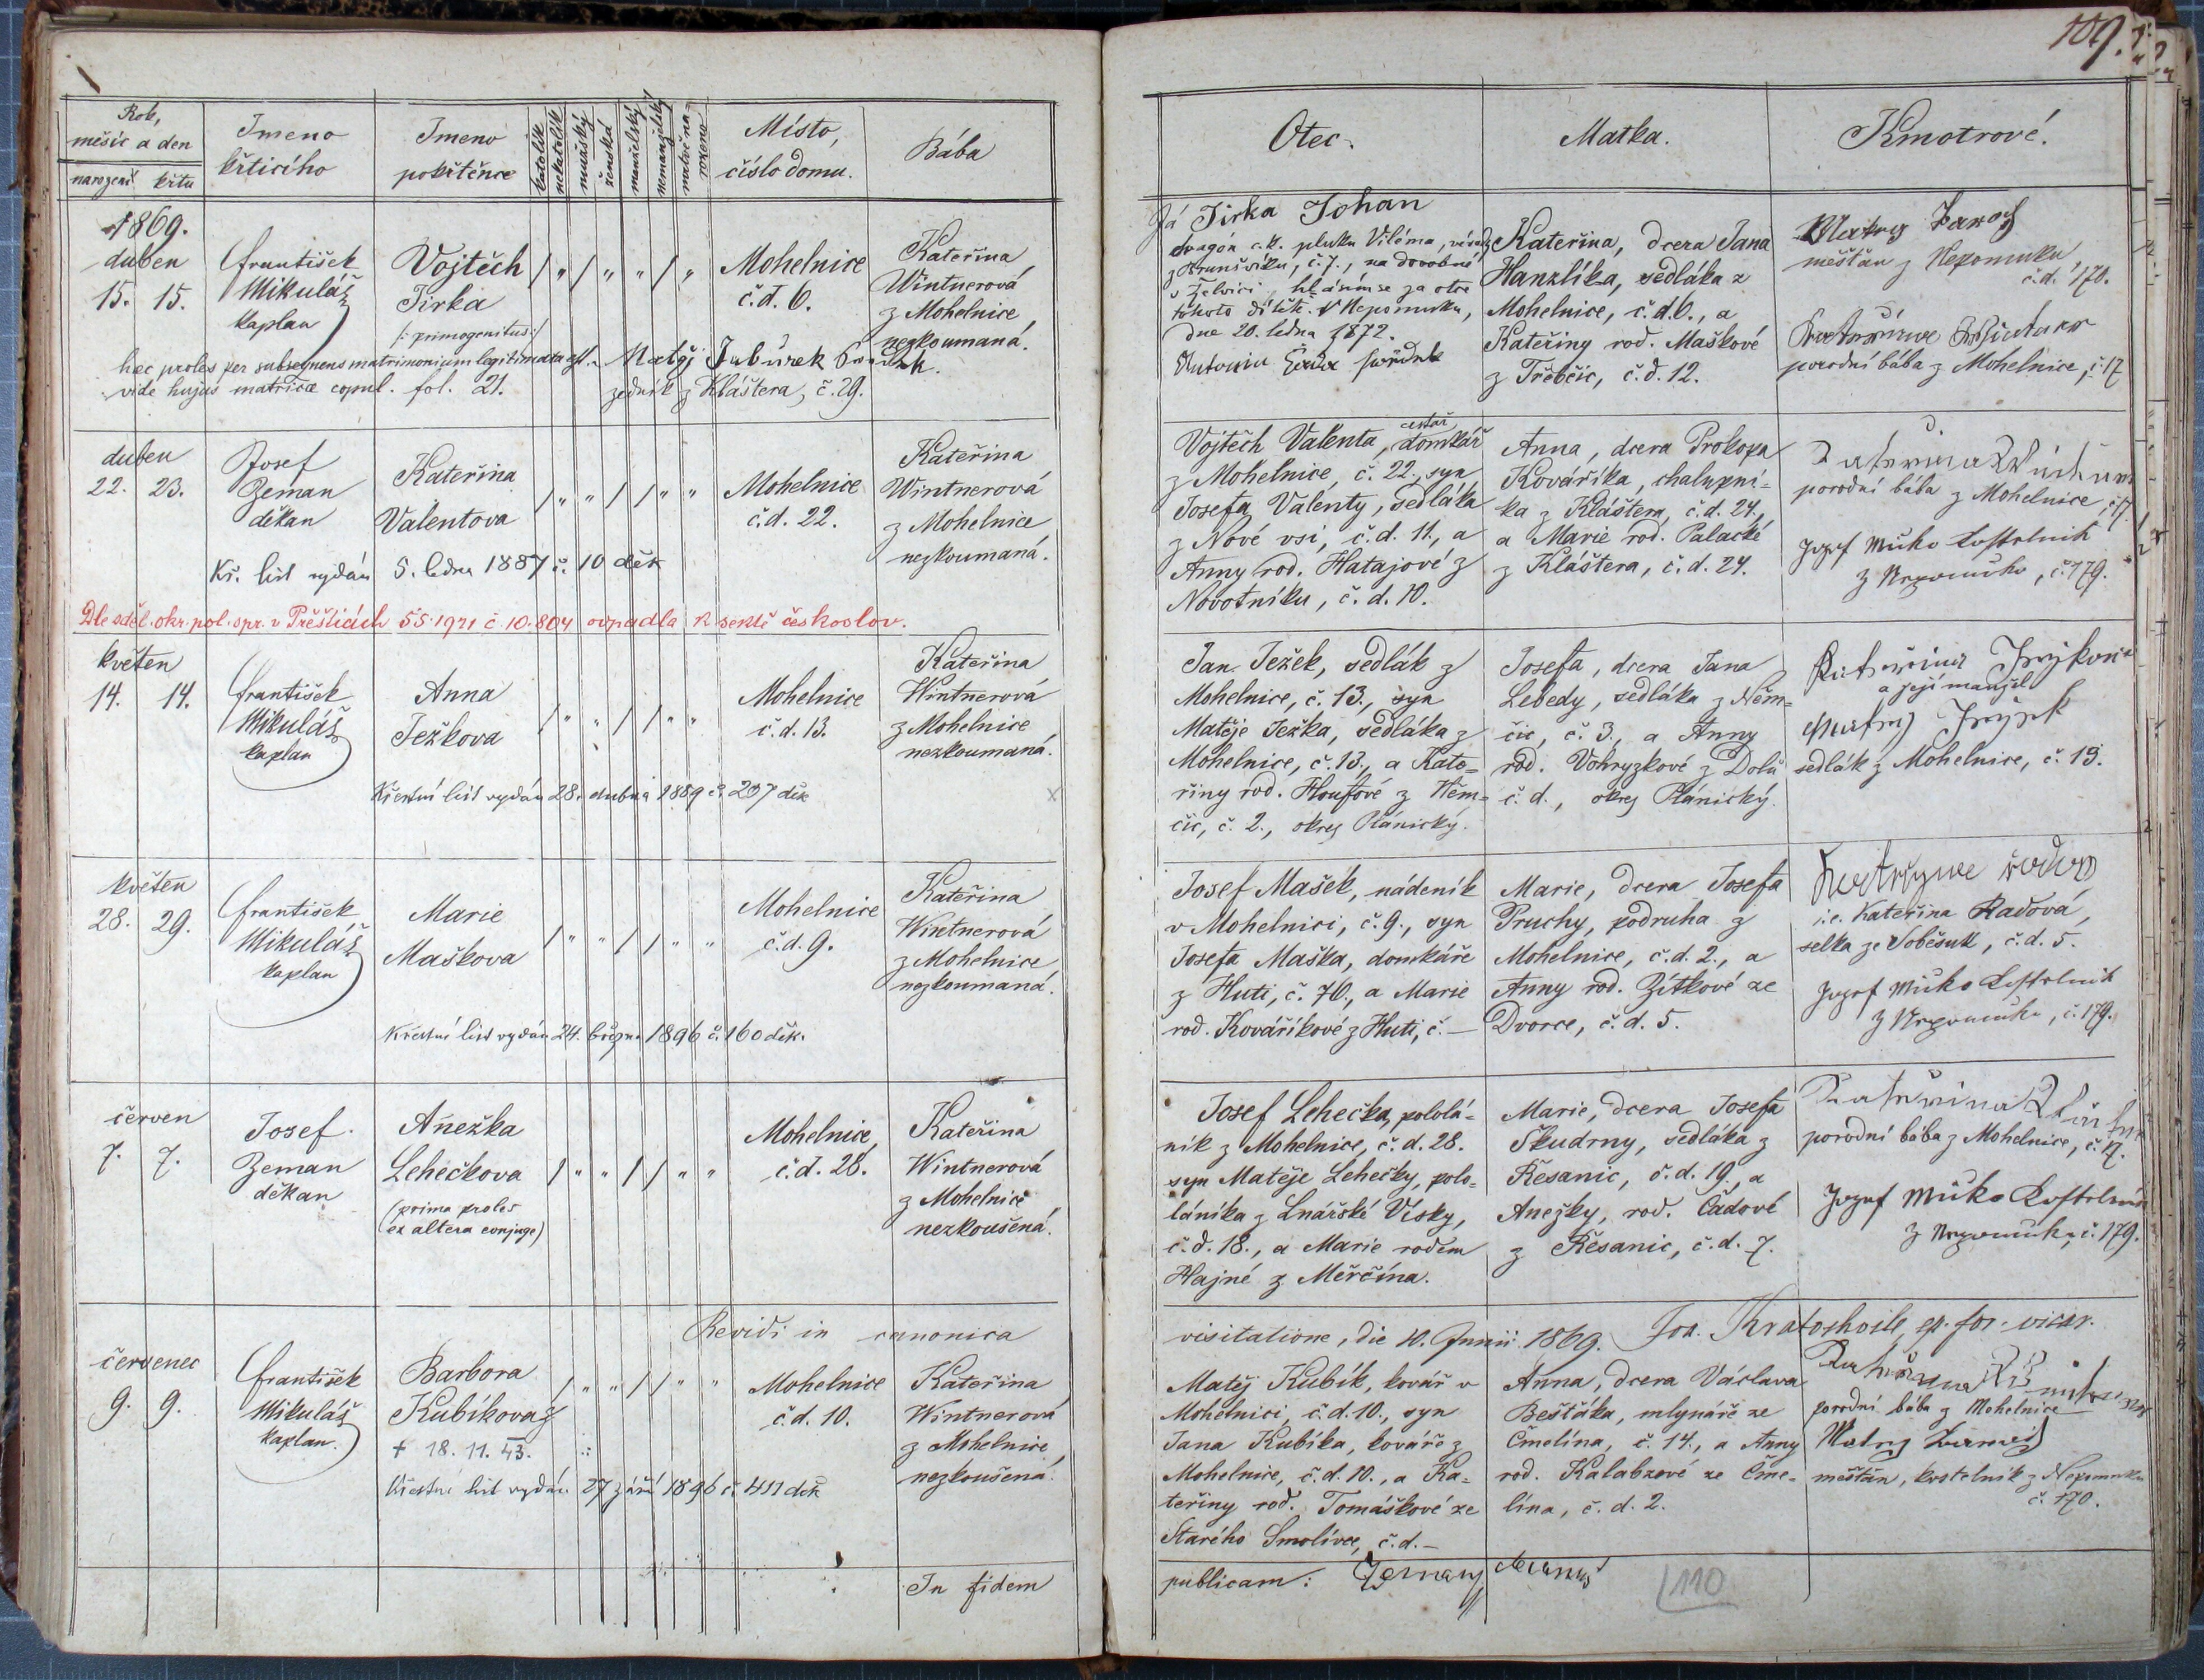 109.
Rok,
měsíc a den
narození křtu
Jmeno
křticího
Jmeno
pokřtěnce
katolík
nekatolík
mužský
ženská
manželský
nemanželský
mrtvě na-
rozeno
Místo,
číslo domu.
Bába
Otec.
Matka.
Kmotrové.
1869.
duben
15. 15.
František
Mikuláš
kaplan
Vojtěch
Jirka
/: primogenitus :/
Mohelnice
č. d. 6.
Kateřina
Wintnerová
z Mohelnice,
nezkoumaná.
hæc proles per subsequens matrimonium legitimata est.
vide hujus matricæ copul. fol. 21.
Matěj Jubůrek
zedník z Kláštera, č. 29.
Já Jirka Johan
dragon c. k. pluku Viléma,
z Brunšviku, č. 7., na dovolené
hlásím se za otce
tohoto dítěte. V Nepomuku,
dne 20. ledna 1872.
Kateřina, dcera Jana
Hanzlíka, sedláka z
Mohelnice, č. d. 6., a
Kateřiny rod. Maškové
z Třebčic, č. d. 12.
měšťan z Nepomuku,
č. d. 170.
porodní bába z Mohelnice, č. 17
duben
22. 23.
Josef
Zeman
děkan
Kateřina
Valentova
Mohelnice
č. d. 22.
Kateřina
Wintnerová
z Mohelnice
nezkoumaná.
Kř. list vydán 5. ledna 1887 č. 10 děk
Dle sděl. okr. pol. spr. v Přešticích 5.5.1921 č. 10.804 odpadla k sektě českoslov.
cestář
Vojtěch Valenta, domkář
z Mohelnice, č. 22., syn
Josefa Valenty, sedláka
z Nové vsi, č. d. 11., a
Anny rod. Hatajové z
Novotníku, č. d. 10.
Anna, dcera Prokopa
Kováříka, chalupní-
ka z Kláštera, č. d. 24.,
a Marie rod. Palacké
z Kláštera, č. d. 24.
porodní bába z Mohelnice, č. 17
Jozef Miko Kostelnik
z Nepomuku, č. 179.
květen
14. 14.
František
Mikuláš
kaplan
Anna
Ježkova
Mohelnice
č. d. 13.
Kateřina
Wintnerová
z Mohelnice
nezkoumaná.
Křestní list vydán 28. dubna 1889 č. 207 děk
Jan Ježek, sedlák z
Mohelnice, č. 13., syn
Matěje Ježka, sedláka z
Mohelnice, č. 13., a Kate-
řiny rod. Houfové z Něm-
čic, č. 2., okres Plánický.
Josefa, dcera Jana
Lebedy, sedláka z Něm-
čic, č. 3., a Anny
rod. Vohryzkové z Dolů
č. d., okres Plánický.
a její manžel
sedlák z Mohelnice, č. 13.
květen
28. 29.
František
Mikuláš
kaplan
Marie
Maškova
Mohelnice
č. d. 9.
Kateřina
Wintnerová
z Mohelnice
nezkoumaná.
Křestní list vydán 24. března 1896 č. 160 děk.
Josef Mašek, nádeník
v Mohelnici, č. 9., syn
Josefa Maška, domkáře
z Huti, č. 76., a Marie
rod. Kováříkové z Huti, č. —
Marie, dcera Josefa
Pruchy, podruha z
Mohelnice, č. d. 2., a
Anny rod. Zítkové ze
Dvorce, č. d. 5.
i. e. Kateřina Radová,
selka ze Soběsuk, č. d. 5.
Jozef Miko Kostelnik
z Nepomuku, č. 179.
červen
7. 7.
Josef
Zeman
děkan
Anežka
Lehečkova
(prima proles
ex altera conjuge)
Mohelnice,
č. d. 28.
Kateřina
Wintnerová
z Mohelnice,
nezkoušená.
Josef Lehečka, pololá-
ník z Mohelnice, č. d. 28.
syn Matěje Lehečky, polo-
láníka z Lnářské Vísky,
č. d. 18., a Marie rodem
Hajné z Měrčína.
Marie, dcera Josefa
Škudrny, sedláka z
Řesanic, č. d. 19., a
Anežky, rod. Čadové
z Řesanic, č. d. 7.
porodní bába z Mohelnice, č. 17.
Jozef Miko Kostelnik
z Nepomuku, č. 179.
Revidi in canonica visitatione, die 10. Junii 1869. Jos. Kratochvile, ep. for. vicar.
červenec
9. 9.
František
Mikuláš
kaplan.
Barbora
Kubíkova
+ 18. 11. 43.
Mohelnice
č. d. 10.
Kateřina
Wintnerová
z Mohelnice,
nezkoušená.
Křestní list vydán 27 září 1896 č. 411 děk
Matěj Kubík, kovář v
Mohelnici, č. d. 10., syn
Jana Kubíka, kováře z
Mohelnice, č. d. 10., a Ka-
teřiny rod. Tomáškové ze
Starého Smolívce, č. d. —
Anna, dcera Václava
Bešťáka, mlynáře ze
Čmelína, č. 14., a Anny
rod. Kalabzové ze Čme-
lína, č. d. 2.
porodní bába z Mohelnice
měšťan, kostelník z Nepomuku
č. 170.
In fidem publicam: Zeman
110